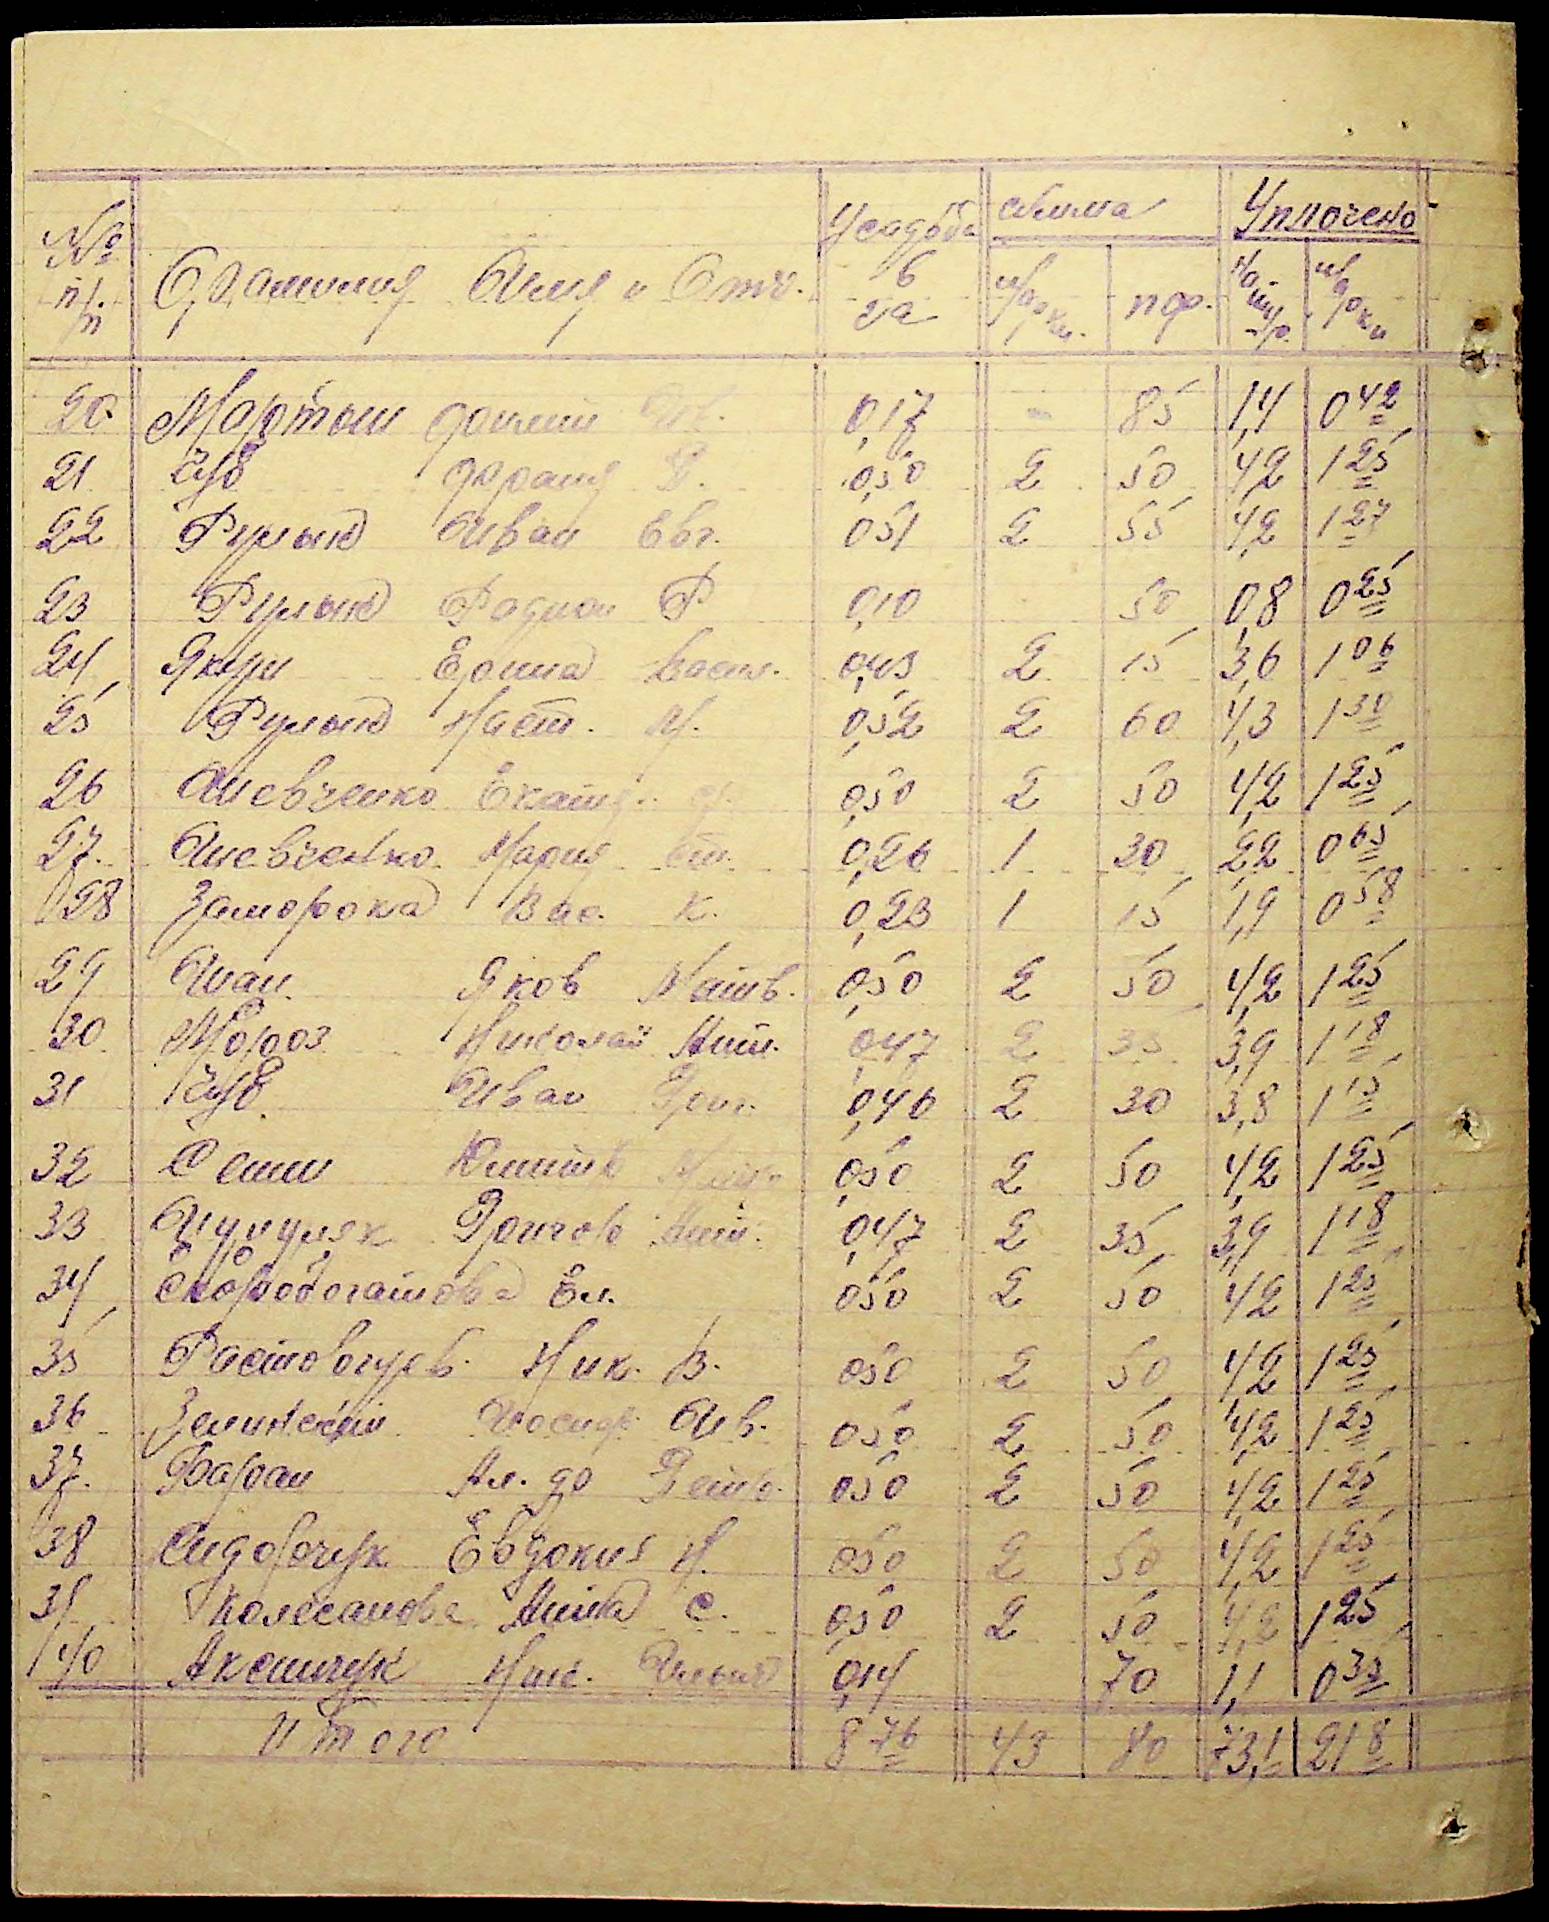 № п/п Фамилия Имя и Отч. Усадьба в га сумма Уплочено
марки пф. натур. марки
20 Мартын Филип Ив. 0,17 - 85 1,4 0 42
21 Чуб Франц 0,50 2 50 4,2 1 25
22 Рулько Иван Евг. 0 51 2 55 4,2 1 27
23 Рулько Родион Р 0,10 50 0,8 0 25
24 Якун Ерина Васил. 0,43 2 15 3,6 1 06
25 Рулько Наст. М. 0,52 2 60 4,3 1 30
26 Шевченко Екатер. 0,50 2 50 4,2 1 25
27. Шевченко Мария Ст. 0,26 1 30 2,2 0 65
28 Заморока Вас. К. 0,23 1 15 1,9 0 58
29 Шан Яков Матв. 0,50 2 50 4,2 1 25
30 Мороз Николай Ант. 0,47 2 35 3,9 1 18
31 Чуб Иван Григ. 0,46 2 30 3,8 1 15
32 Сеш 0,50 2 50 4,2 1 25
33 Григор 0,47 2 35 3,9 1 18
34 Скоробогатова Ел. 0 50 2 50 4,2 1 25
35 Растовцев Ник. В. 0 50 2 50 4,2 1 25
36 Зелинский Иосиф Ив. 0 50 2 50 4,2 1 25
37. Баран Ал. др Петр. 0 50 2 50 4,2 1 25
38 Сидорчук Евдокия Н. 0 50 2 50 4,2 1 25
39 Колесанова С. 0,50 2 50 4,2 1 25
40 Аксинчук Ник. Ильич 0,14 70 1,1 0 35
Итого 8 76 43 80 73,1 21 8